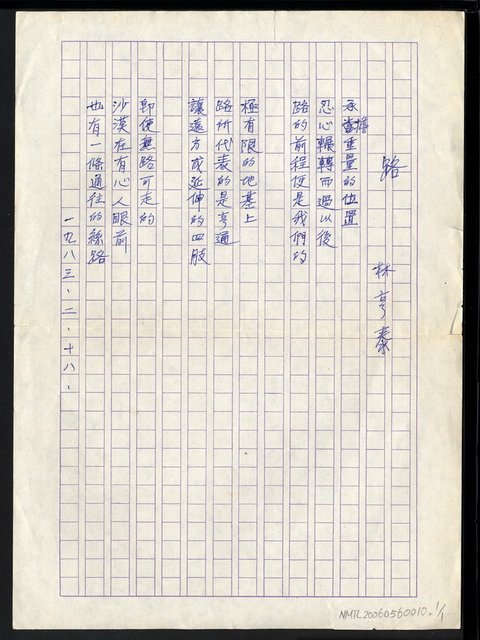 路
林亨泰
承擔重量的位置
忍心輾轉而過以後
路的前程便是我們的
極有限的地基上
路所代表的是亨通
讓遠方成延伸的四肢
即使無路可走的
沙漠在有心人眼前
也有一條通往的絲路
一九八三、二、十八、
NMTL20060560010, 1/1